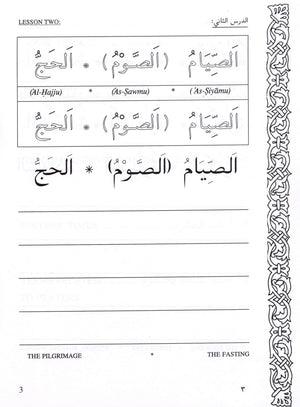 LESSON TWO: الدرس الثاني:
اَلصِّيَامُ (اَلصَّوْمُ) * اَلحَجُّ
(Al-Ḥajju) * (Aṣ-Ṣawmu) * (ʾAṣ-Ṣiyāmu)
اَلصِّيَامُ (اَلصَّوْمُ) * اَلحَجُّ
اَلصِّيَامُ (اَلصَّوْمُ) * اَلحَجُّ
THE PILGRIMAGE * THE FASTING
3 ٣